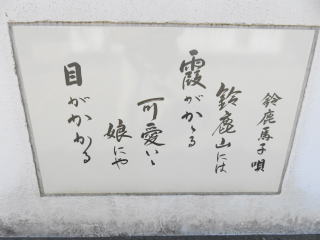 鈴鹿馬子唄
鈴鹿山には
霞がかゝる
可愛いゝ
娘にや
目がかかる